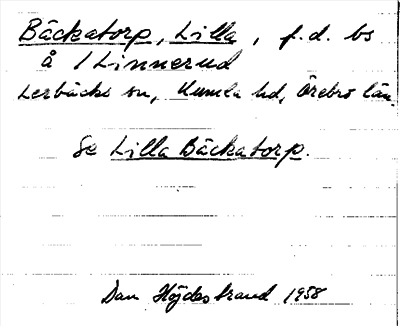 Bäckatorp, Lilla, f.d. bs
å 1 Linnerud
Lerbäcks sn, Kumla hd, Örebro län.
Se Lilla Bäckatorp.
Dan Höjdestrand 1958